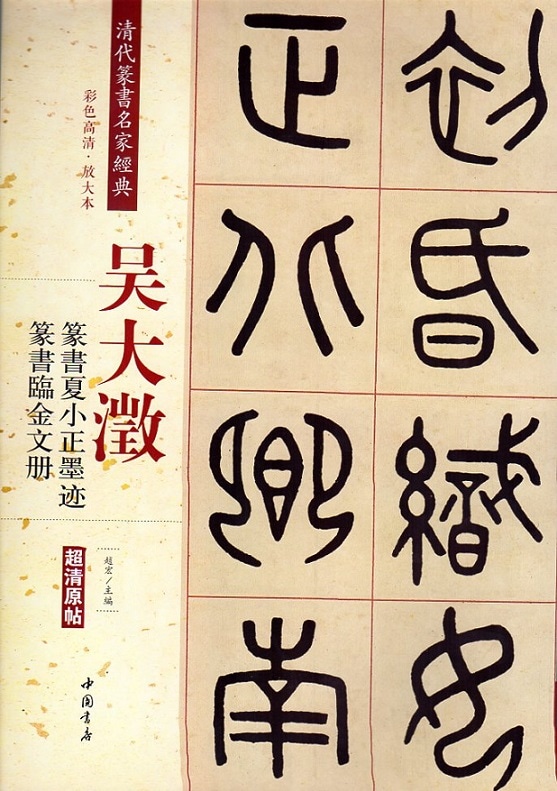 清代篆書名家經典
彩色高清·放大本
吴大澂
篆書夏小正墨迹
篆書臨金文册
趙宏/主編
超清原帖
中国書店
初昏織女
正北鄉南